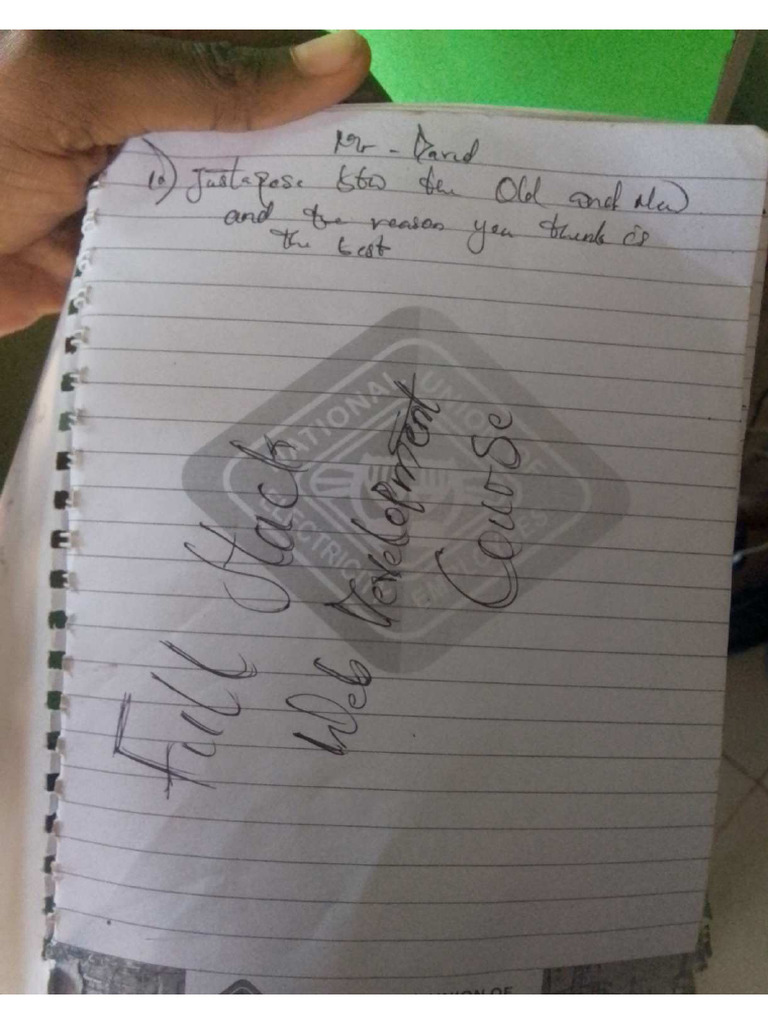 Mr - David
1a) Justapose btw the Old and New
and the reason you think is
the best
NATIONAL UNION OF
ELECTRICITY EMPLOYEES
Full Stack
Web Development
Course
UNION OF